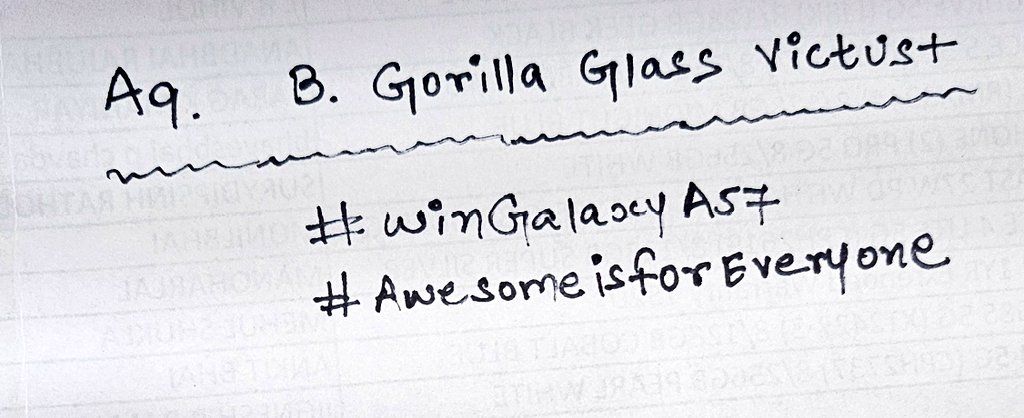 A9. B. Gorilla Glass Victus+
# winGalaxy A57
# AwesomeisforEveryone